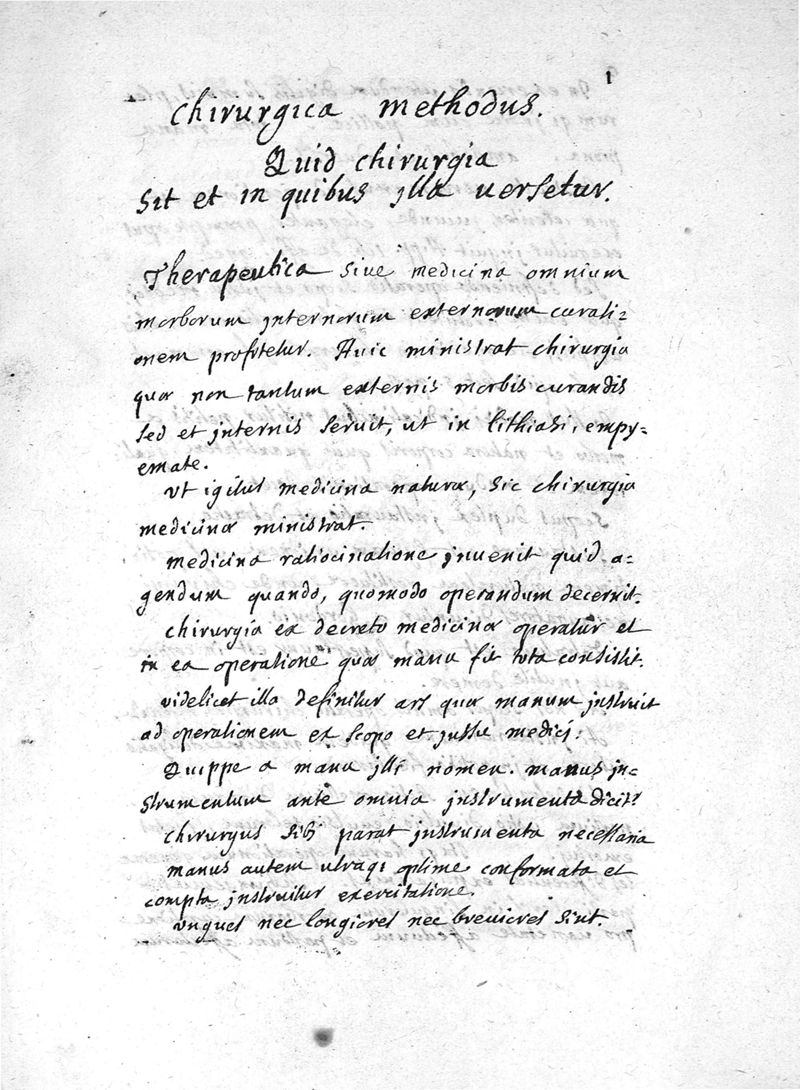 1
chirurgica methodus.
Quid chirurgia
sit et in quibus illa uersetur.
Therapeutica siue medicina omnium
morborum jnternorum externorum curati=
onem profitetur. Huic ministrat chirurgia
quæ non tantum externis morbis curandis
sed et jnternis seruit, ut in lithiasi, empy=
emate.
Vt igitur medicina naturæ, sic chirurgia
medicinæ ministrat.
medicina ratiocinatione jnuenit quid a=
gendum quando, quomodo operandum decernit.
chirurgia ex decreto medicinæ operatur et
in ea operatione quæ manu fit tota consistit.
videlicet illa definitur ars quæ manum jnstruit
ad operationem ex scopo et jussu medicj:
Quippe a manu jlli nomen. manus jn=
strumentum ante omnia jnstrumenta dicitr
chirurgus sibj parat jnstrumenta necessaria
manus autem utraqj optime conformata et
compta jnstruitur exercitatione.
vngues nec longiores nec breuiores sint.